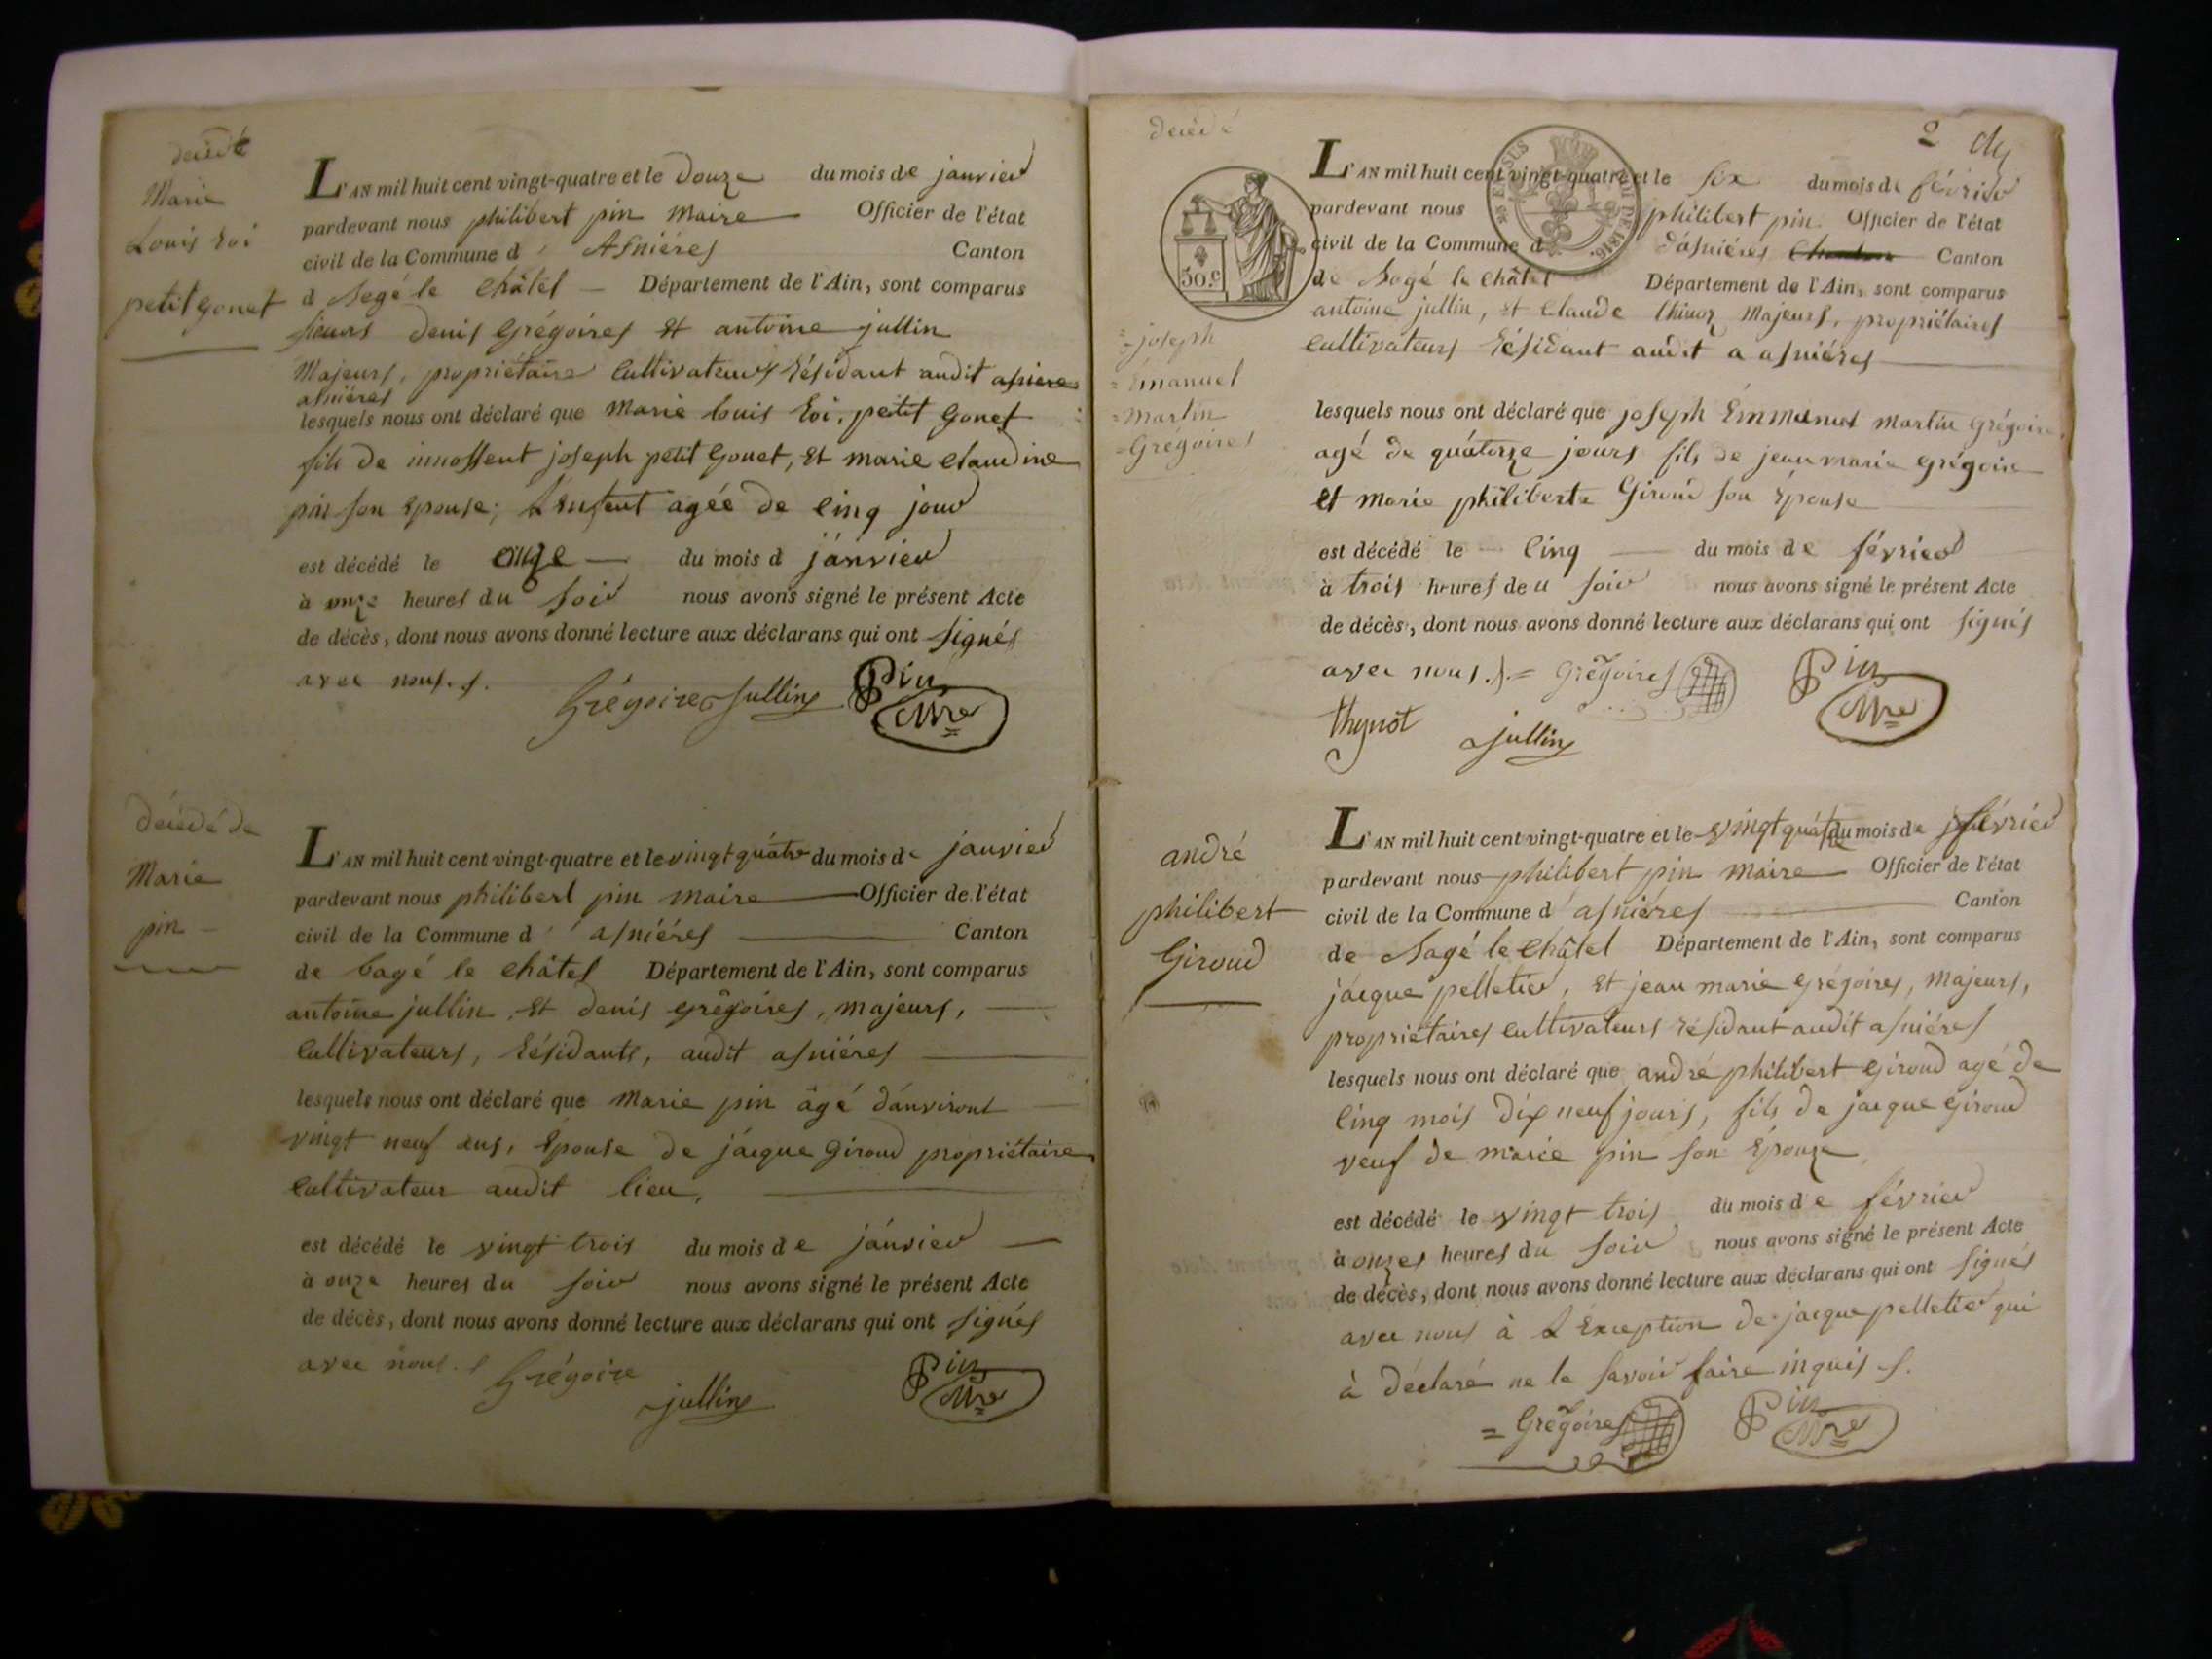 décédé
Marie
Louis Roi
petit gonet
L'AN mil huit cent vingt-quatre et le Douze du mois de janvier
pardevant nous philibert pin Maire Officier de l'état
civil de la Commune d' Asniéres Canton
d Bagé le Châtel Département de l'Ain, sont comparus
sieurs denis Grégoires Et antoine jullin
Majeurs, propriétaire Cultivateurs Résidant audit asniere
asniéres
lesquels nous ont déclaré que Marie louis Roi, petit Gonet
fils de innossent joseph petit Gonet, Et marie claudine
pin son Epouse; L'Enfent agée de cinq jour
est décédé le onze du mois d janvier
à onze heures du soir nous avons signé le présent Acte
de décès, dont nous avons donné lecture aux déclarans qui ont signés
avec nous. s.
Grégoire Jullin Pin
Mre
décédé de
Marie
pin
L'AN mil huit cent vingt-quatre et le vingt quatre du mois de janvier
pardevant nous philibert pin maire Officier de l'état
civil de la Commune d' asniéres Canton
de bagé le châtel Département de l'Ain, sont comparus
antoine jullin, Et denis grégoires, majeurs,
Cultivateurs, Résidants, audit asniéres
lesquels nous ont déclaré que Marie pin âgé d'anviront
vingt neuf ans, Epouse de jacque Giroud propriétaire
Cultivateur audit lieu,
est décédé le vingt trois du mois de janvier
à onze heures du soir nous avons signé le présent Acte
de décès, dont nous avons donné lecture aux déclarans qui ont signés
avec nous. s
Grégoire jullin Pin
Mre
2
décédé
30.c
joseph
Emanuel
Martin
Grégoires
L'AN mil huit cent vingt-quatre et le six du mois de février
pardevant nous philibert pin Officier de l'état
civil de la Commune d d'asniéres Canton
de Bagé le Châtel Département de l'Ain, sont comparus
antoine jullin, Et Claude Majeurs, propriétaires
Cultivateurs Résidant audit a asniéres
lesquels nous ont déclaré que joseph Emmanuel Martin Grégoire
agé de quatorze jours fils de jean marie grégoire
Et marie philiberte Giroud son Epouse
est décédé le cinq du mois de février
à trois heures de u soir nous avons signé le présent Acte
de décès, dont nous avons donné lecture aux déclarans qui ont signés
avec nous. s. = Grégoires Pin
Mre
thynot jullin
andré
philibert
Giroud
L'AN mil huit cent vingt-quatre et le vingt quatre du mois de février
pardevant nous philibert pin Maire Officier de l'état
civil de la Commune d' asniéres Canton
de Bagé le Châtel Département de l'Ain, sont comparus
jacque pelletier, Et jean marie Grégoires, Majeurs,
propriétaires Cultivateurs résidant audit asniéres
lesquels nous ont déclaré que andré philibert Giroud agé de
cinq mois dix neuf jours, fils de jacque Giroud
veuf de marie pin son Epouze
est décédé le vingt trois du mois de février
à onzes heures du soir nous avons signé le présent Acte
de décès, dont nous avons donné lecture aux déclarans qui ont signés
avec nous à L'Exception de jacque pelletier qui
à déclaré ne le savoir faire inquis s.
= Grégoires Pin
Mre